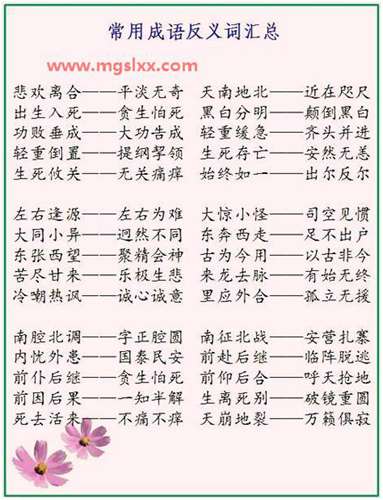 常用成语反义词汇总
www.mgslxx.com
悲欢离合——平淡无奇 天南地北——近在咫尺
出生入死——贪生怕死 黑白分明——颠倒黑白
功败垂成——大功告成 轻重缓急——齐头并进
轻重倒置——提纲挈领 生死存亡——安然无恙
生死攸关——无关痛痒 始终如一——出尔反尔
左右逢源——左右为难 大惊小怪——司空见惯
大同小异——迥然不同 东奔西走——足不出户
东张西望——聚精会神 古为今用——以古非今
苦尽甘来——乐极生悲 来龙去脉——有始无终
冷嘲热讽——诚心诚意 里应外合——孤立无援
南腔北调——字正腔圆 南征北战——安营扎寨
内忧外患——国泰民安 前赴后继——临阵脱逃
前仆后继——贪生怕死 前仰后合——呼天抢地
前因后果——一知半解 生离死别——破镜重圆
死去活来——不痛不痒 天崩地裂——万籁俱寂